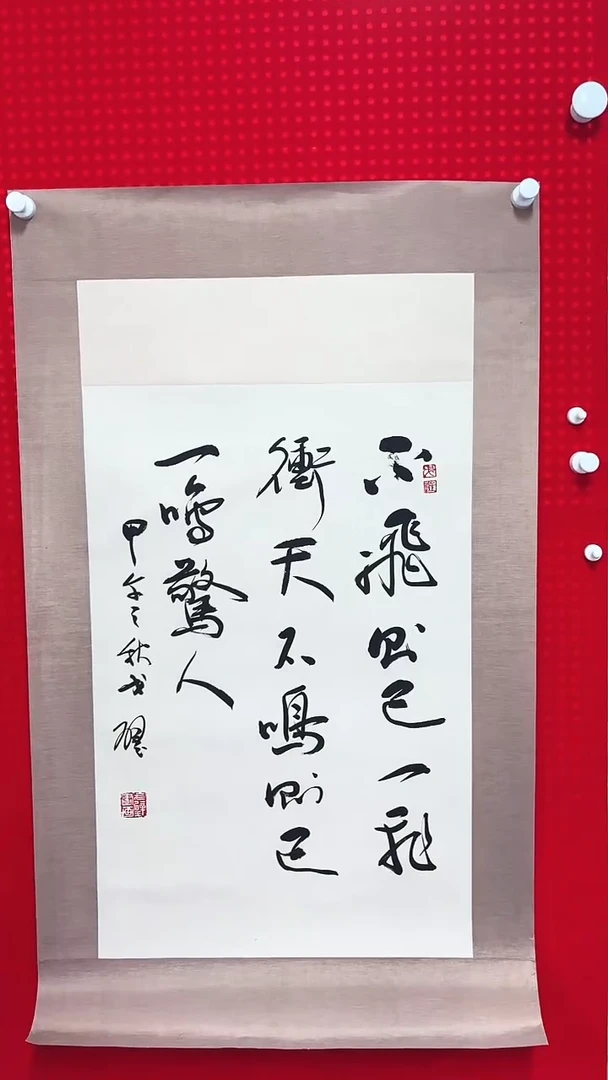 不飛則已一飛
衝天不鳴則已
一鳴驚人
甲午之秋書